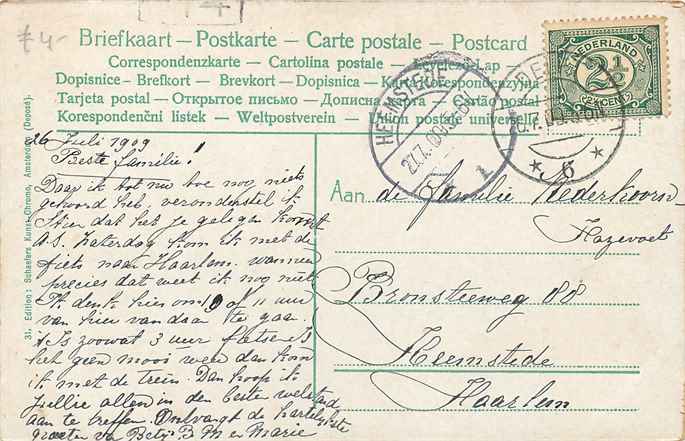 £4-
Briefkaart — Postkarte — Carte postale — Postcard
Correspondenzkarte — Cartolina postale — Levelező-Lap
Dopisnice — Brefkort — Brevkort — Dopisnica — Karta korespondenzyjna
Tarjeta postal — Открытое письмо — Дописна карта — Cartão postal
Korespondenční listek — Weltpostverein — Union postale universelle
NEDERLAND
2½
2½ CENT
HEEMSTEDE
27.7.09
1
6
31. Edition: Schaefers Kunst-Chromo, Amsterdam (Deposé).
26 Juli 1909
Beste familie!
Daar ik tot nu toe nog niets
gehoord heb, veronderstel ik
dat het je gelegen komt
a.s. Zaterdag kom ik met de
fiets naar Haarlem. wanneer
precies dat weet ik nog niet
Ik denk hier om 10 of 11 uur
van hier vandaan te gaan.
Is zoowat 3 uur fietsen. Is
het geen mooi weer dan kom
ik met de trein. Dan hoop ik
jullie allen in den beste welstand
aan te treffen. Ontvangt de hartelijkste
groeten van Betje B M en Marie
Aan de familie Nederkoorn
Hazevoet
Bronsteeweg 88
Heemstede
Haarlem